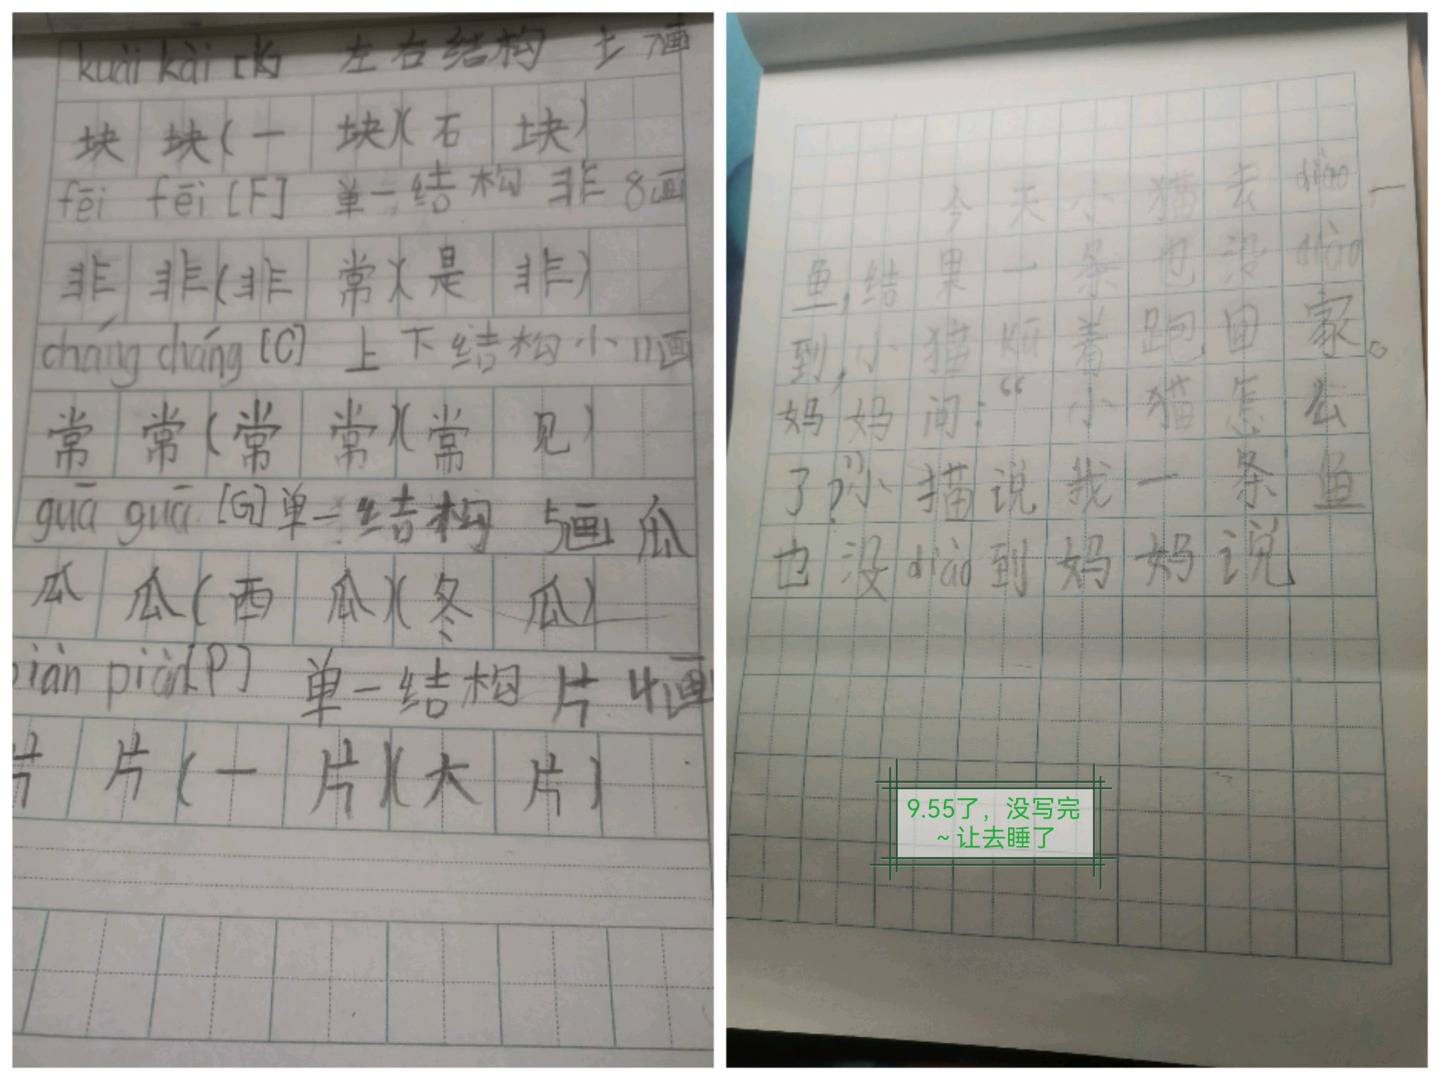 kuài kài [K] 左右结构 土 7画
块 块(一 块)(石 块)
fēi fēi [F] 单一结构 非 8画
非 非(非 常)(是 非)
cháng cháng [C] 上下结构 小 11画
常 常(常 常)(常 见)
guā guā [G] 单一结构 5画 瓜
瓜 瓜(西 瓜)(冬 瓜)
piàn piàn [P] 单一结构 片 4画
片 片(一 片)(大 片)
今天小猫去diào
鱼,结果一条也没diào
到,小猫kū着跑回家。
妈妈问:“小猫怎么
了?”小猫说我一条鱼
也没diào到妈妈说
9.55了，没写完
~让去睡了